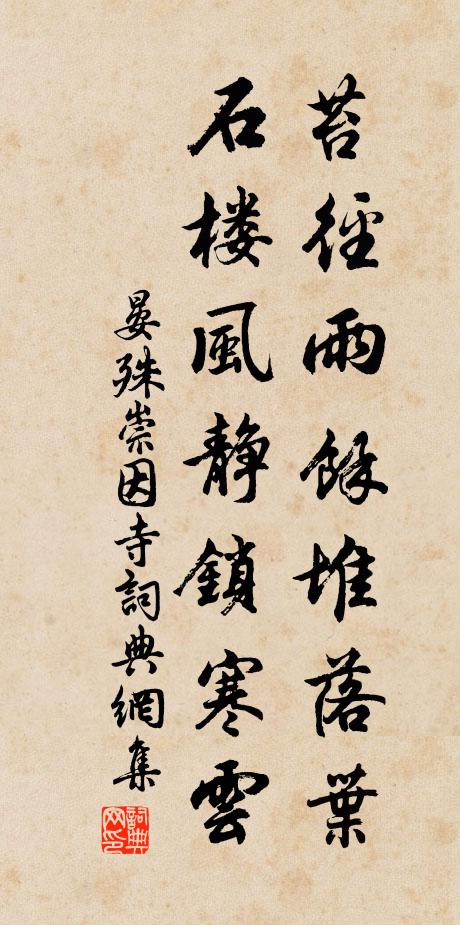 苔徑雨餘堆落葉
石楼風静鎖寒雲
晏殊崇因寺詞典網集
詞典网印